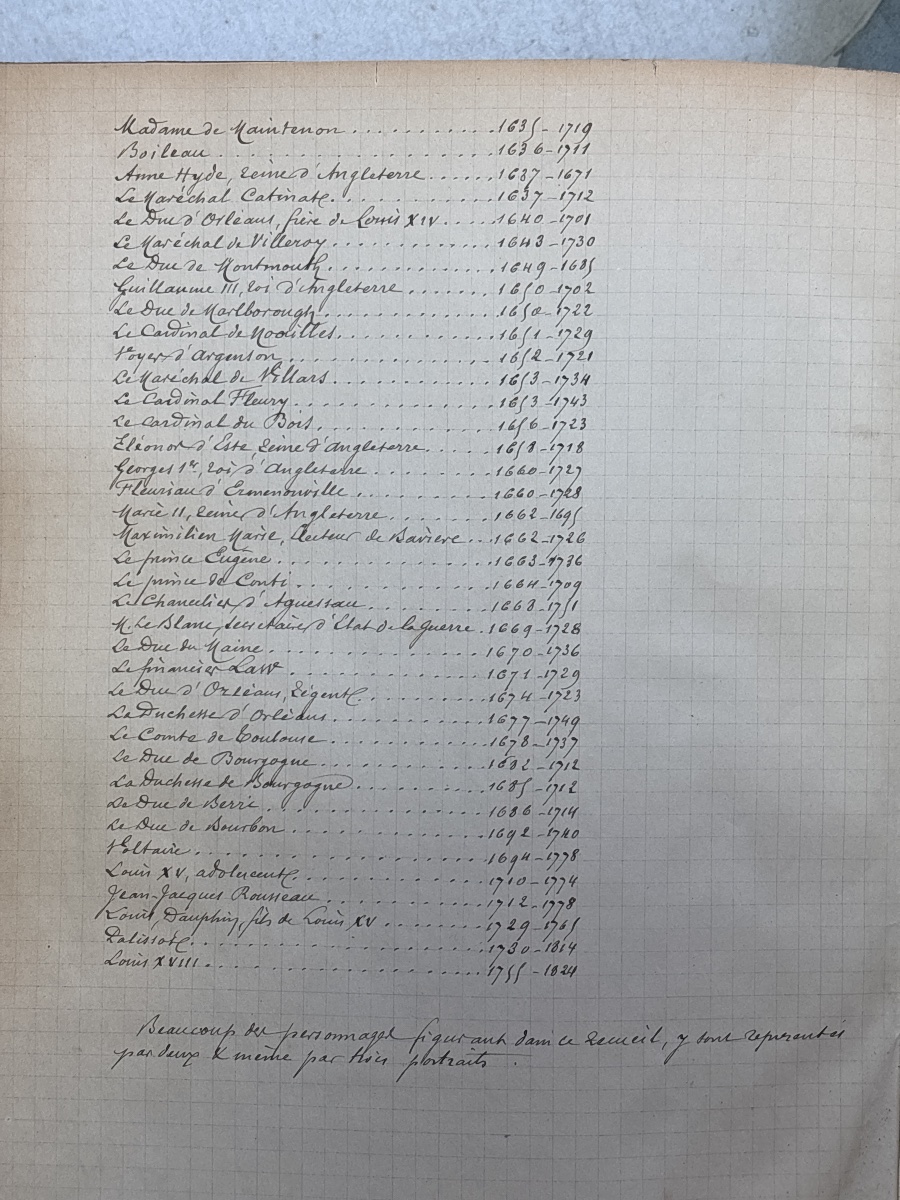 Madame de Maintenon . . . . . . . . . . . 1635 - 1719
Boileau . . . . . . . . . . . . . . . . . . . . 1636 - 1711
Anne Hyde, reine d'Angleterre . . . . . . 1637 - 1671
Le Maréchal Catinat . . . . . . . . . . . . 1637 - 1712
Le Duc d'Orléans, frère de Louis XIV . . . . 1640 - 1701
Le Maréchal de Villeroy . . . . . . . . . . . 1643 - 1730
Le Duc de Montmouth . . . . . . . . . . . 1649 - 1685
Guillaume III, roi d'Angleterre . . . . . . . 1650 - 1702
Le Duc de Marlborough . . . . . . . . . . . 1650 - 1722
Le Cardinal de Noailles . . . . . . . . . . . 1651 - 1729
Voyer d'Argenson . . . . . . . . . . . . . 1652 - 1721
Le Maréchal de Villars . . . . . . . . . . . 1653 - 1734
Le Cardinal Fleury . . . . . . . . . . . . . 1653 - 1743
Le cardinal du Bois . . . . . . . . . . . . 1656 - 1723
Eléonor d'Este, reine d'Angleterre . . . . . 1658 - 1718
Georges 1er, roi d'Angleterre . . . . . . . . 1660 - 1727
Fleuriau d'Ermenonville . . . . . . . . . . 1660 - 1728
Marie II, reine d'Angleterre . . . . . . . . 1662 - 1695
Maximilien Marie, Electeur de Bavière . . . 1662 - 1726
Le prince Eugène . . . . . . . . . . . . . . 1663 - 1736
Le prince de Conti . . . . . . . . . . . . . 1664 - 1709
Le Chancelier d'Aguessau . . . . . . . . . 1668 - 1751
M. Le Blanc, secrétaire d'Etat de la Guerre . 1669 - 1728
Le Duc du Maine . . . . . . . . . . . . . . 1670 - 1736
Le financier Law . . . . . . . . . . . . . . 1671 - 1729
Le Duc d'Orléans, Régent . . . . . . . . . 1674 - 1723
La Duchesse d'Orléans . . . . . . . . . . . 1677 - 1749
Le Comte de Toulouse . . . . . . . . . . . 1678 - 1737
Le Duc de Bourgogne . . . . . . . . . . . . 1682 - 1712
La Duchesse de Bourgogne . . . . . . . . . 1685 - 1712
Le Duc de Berri . . . . . . . . . . . . . . . 1686 - 1714
Le Duc de Bourbon . . . . . . . . . . . . . 1692 - 1740
Voltaire . . . . . . . . . . . . . . . . . . . 1694 - 1778
Louis XV, adolescent . . . . . . . . . . . . 1710 - 1774
Jean-Jacques Rousseau . . . . . . . . . . . 1712 - 1778
Louis, Dauphin, fils de Louis XV . . . . . . 1729 - 1765
Palissot . . . . . . . . . . . . . . . . . . . 1730 - 1814
Louis XVIII . . . . . . . . . . . . . . . . . 1755 - 1824
Beaucoup des personnages figurant dans ce recueil, y sont representés
par deux & même par trois portraits .